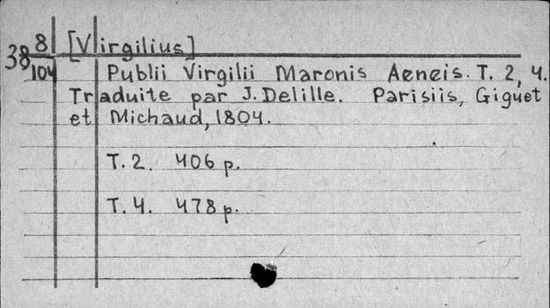 38 8/104 [Virgilius]
Publii Virgilii Maronis Aeneis. T. 2, 4.
Traduite par J. Delille. Parisiis, Giguet
et Michaud, 1804.
T. 2. 406 p.
T. 4. 478 p.